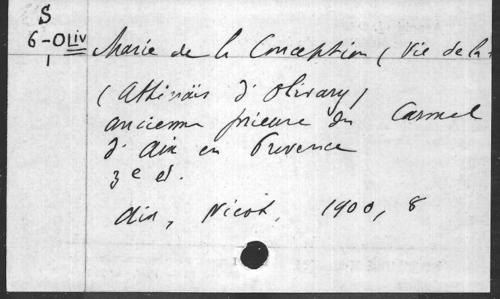 S
6-OLiv
1
Marie de la Conception (Vie de la
(Athénaïs d'Olivary)
ancienne prieure du Carmel
d'Aix en Provence
3e ed.
Aix, Nicot, 1900, 8